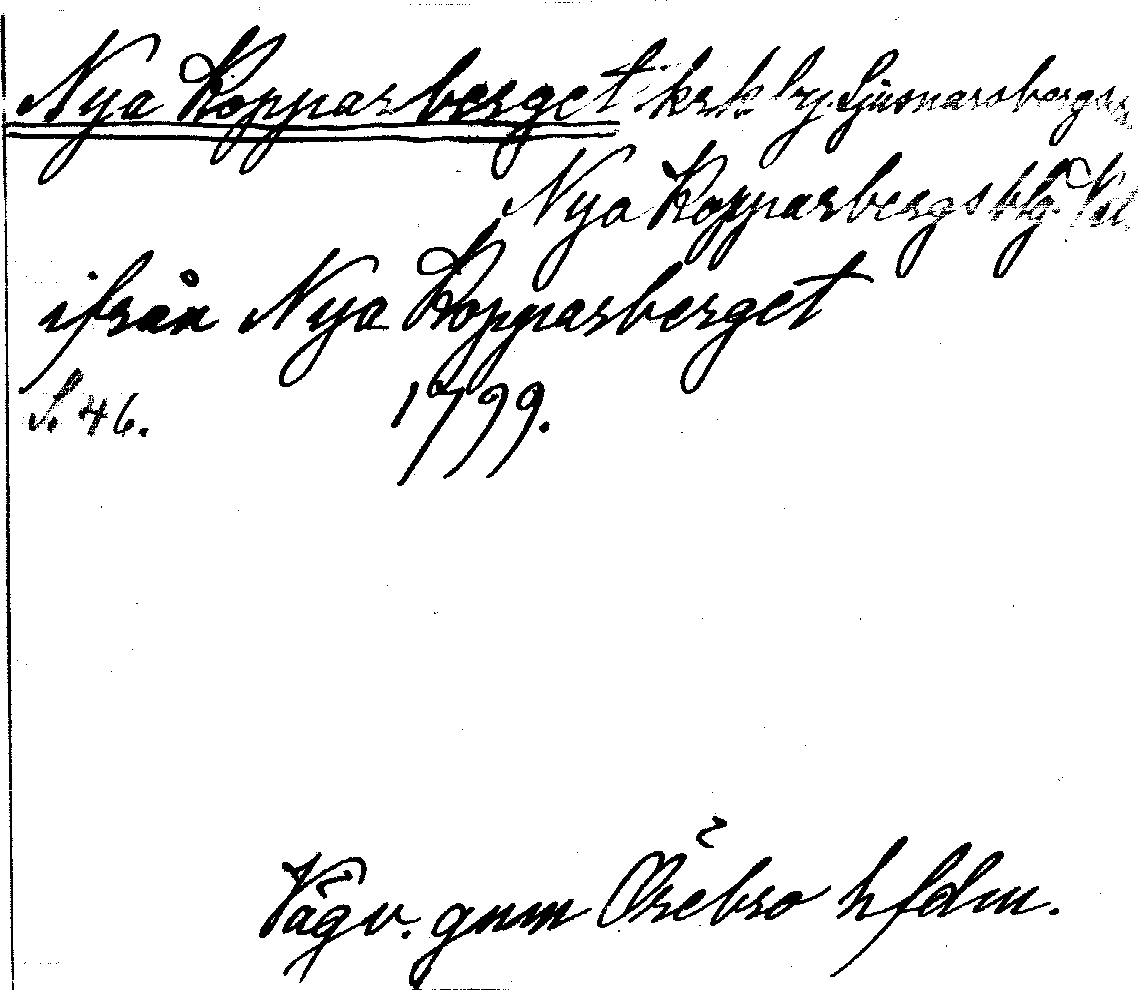 Nya Kopparberget krkby. Ljusnarsbergs
Nya Kopparbergs blg.
ifrån Nya Kopparberget
S. 46. 1799.
Vägv. gnm Örebro hfdm.